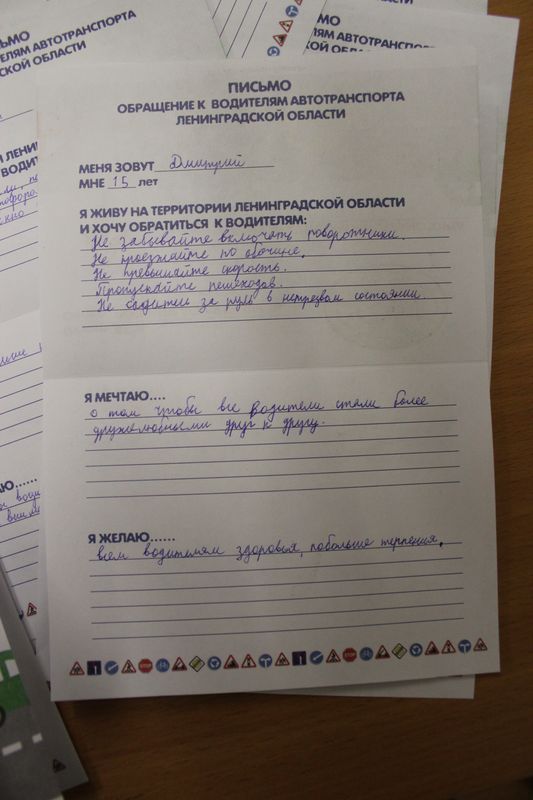 ПИСЬМО
ОБРАЩЕНИЕ К ВОДИТЕЛЯМ АВТОТРАНСПОРТА
ЛЕНИНГРАДСКОЙ ОБЛАСТИ
МЕНЯ ЗОВУТ Дмитрий
МНЕ 15 лет
Я ЖИВУ НА ТЕРРИТОРИИ ЛЕНИНГРАДСКОЙ ОБЛАСТИ
И ХОЧУ ОБРАТИТЬСЯ К ВОДИТЕЛЯМ:
Не забывайте включать поворотники.
Не проезжайте по обочине.
Не превышайте скорость.
Пропускайте пешеходов.
Не садитесь за руль в нетрезвом состоянии.
Я МЕЧТАЮ....
о том чтобы все водители стали более
дружелюбными друг к другу.
Я ЖЕЛАЮ......
всем водителям здоровья, побольше терпения.
STOP
ЬМО
ТЕЛЯМ АВТОТРАНСПОРТА
СКОЙ ОБЛАСТИ
МО
ЛЯМ АВТОТРАНСПОРТ
ОЙ ОБЛАСТИ